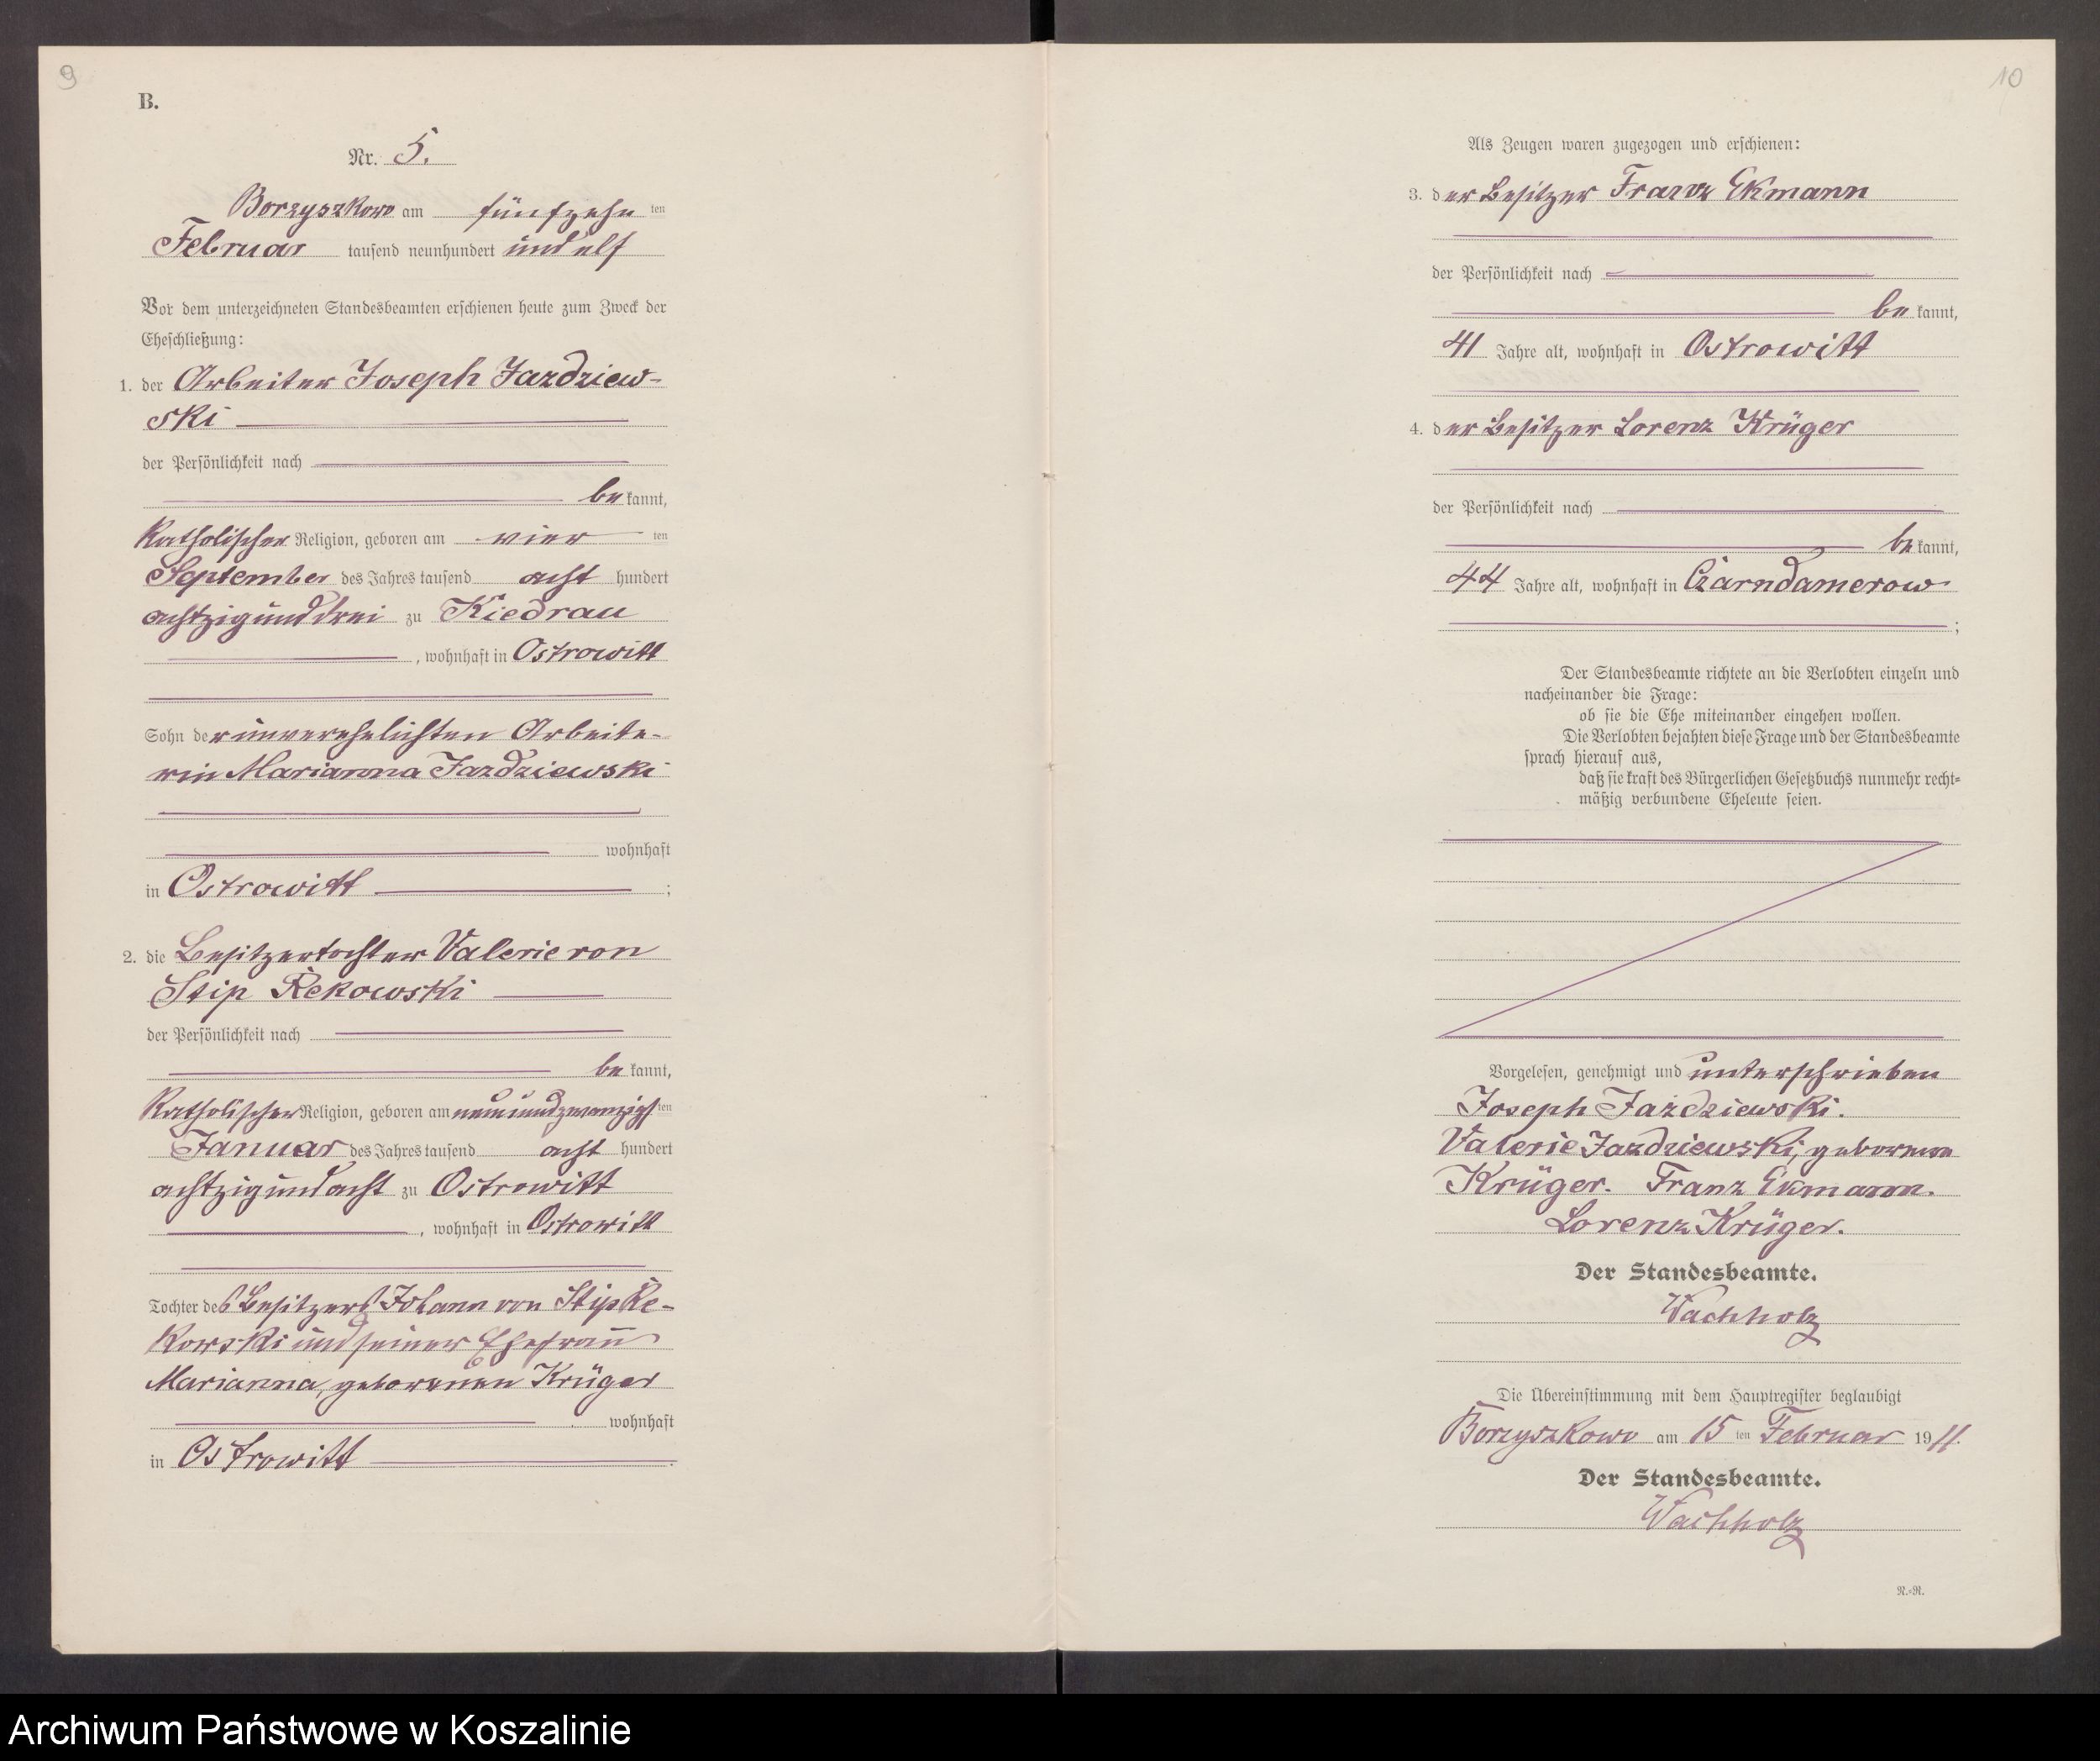 9
B.
Nr. 5.
Borzyszkowo am fünfzehnten
Februar tausend neunhundert und elf
Vor dem unterzeichneten Standesbeamten erschienen heute zum Zweck der
Eheschließung:
1. der Arbeiter Joseph Jazdziew-
ski
der Persönlichkeit nach
bekannt,
Katholischer Religion, geboren am vierten
September des Jahres tausend acht hundert
achtzig und drei zu Kiedrau
, wohnhaft in Ostrowitt
Sohn der unverehelichten Arbeite-
rin Marianna Jazdziewski
wohnhaft
in Ostrowitt ;
2. die Besitzertochter Valerie von
Stip Rekowski
der Persönlichkeit nach
bekannt,
Katholischer Religion, geboren am neunundzwanzigsten
Januar des Jahres tausend acht hundert
achtzig und acht zu Ostrowitt
, wohnhaft in Ostrowitt
Tochter des Besitzers Johann von Stip Re-
kowski und seiner Ehefrau
Marianna, geborenen Krüger
wohnhaft
in Ostrowitt .
10
Als Zeugen waren zugezogen und erschienen:
3. der Besitzer Franz Ekmann
der Persönlichkeit nach
bekannt,
41 Jahre alt, wohnhaft in Ostrowitt
4. der Besitzer Lorenz Krüger
der Persönlichkeit nach
bekannt,
44 Jahre alt, wohnhaft in Czarndamerow
;
Der Standesbeamte richtete an die Verlobten einzeln und
nacheinander die Frage:
ob sie die Ehe miteinander eingehen wollen.
Die Verlobten bejahten diese Frage und der Standesbeamte
sprach hierauf aus,
daß sie kraft des Bürgerlichen Gesetzbuchs nunmehr recht-
mäßig verbundene Eheleute seien.
Vorgelesen, genehmigt und unterschrieben
Joseph Jazdziewski.
Valerie Jazdziewski, geborene
Krüger. Franz Ekmann.
Lorenz Krüger.
Der Standesbeamte.
Wachholz
Die Übereinstimmung mit dem Hauptregister beglaubigt
Borzyszkowo am 15ten Februar 1911.
Der Standesbeamte.
Wachholz
R.-R.
Archiwum Państwowe w Koszalinie